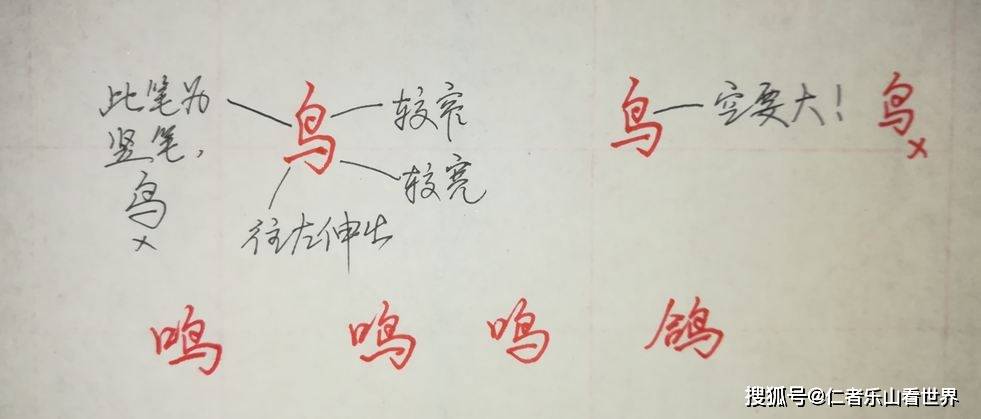 此笔为 鸟 较窄 鸟 空要大! 鸟
竖笔, 较宽 x
鸟
x 往左伸出
鸣 鸣 鸣 鸽
搜狐号@仁者乐山看世界